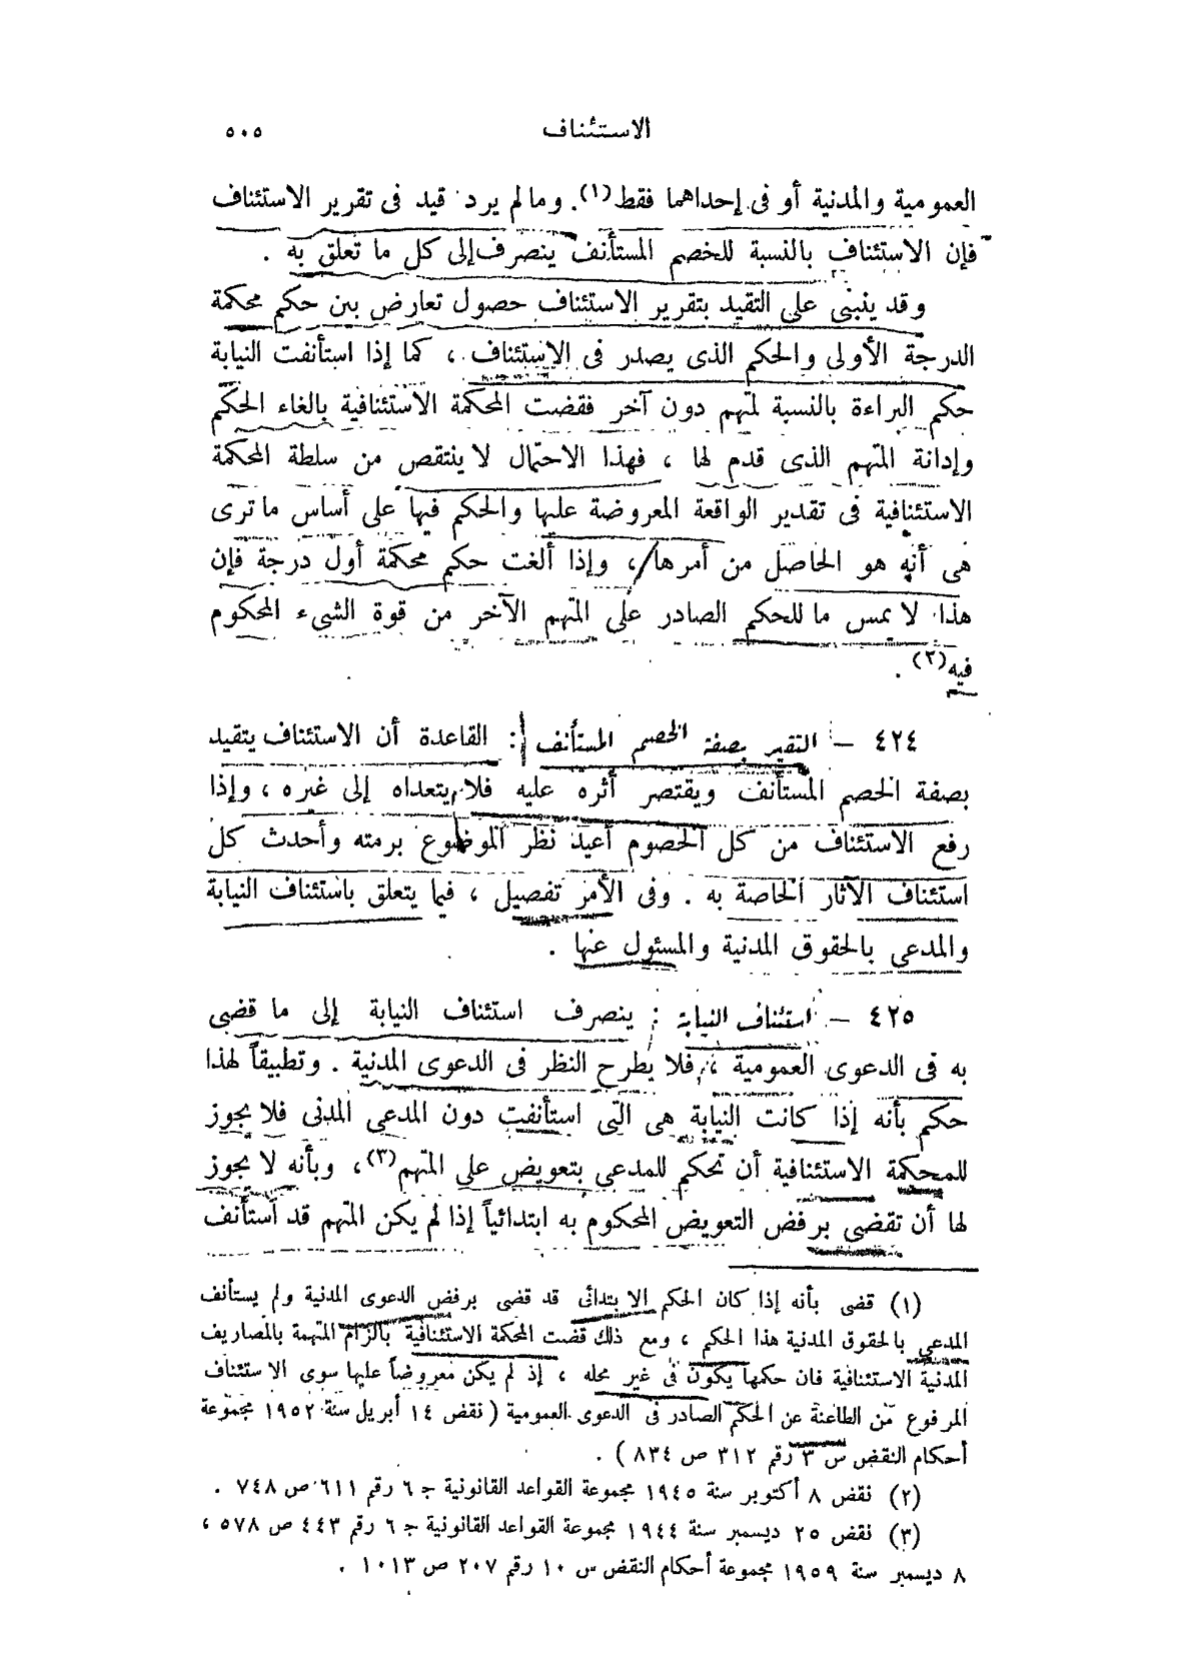 الاستئناف ٥٠٥
العمومية والمدنية أو فى إحداهما فقط(١). وما لم يرد قيد فى تقرير الاستئناف
فإن الاستئناف بالنسبة للخصم المستأنف ينصرف إلى كل ما تعلق به .
وقد ينبنى على التقيد بتقرير الاستئناف حصول تعارض بين حكم محكمة
الدرجة الأولى والحكم الذى يصدر فى الاستئناف ، كما إذا استأنفت النيابة
حكم البراءة بالنسبة لمتهم دون آخر فقضت المحكمة الاستئنافية بالغاء الحكم
وإدانة المتهم الذى قدم لها ، فهذا الاحتمال لا ينتقص من سلطة المحكمة
الاستئنافية فى تقدير الواقعة المعروضة عليها والحكم فيها على أساس ما ترى
هى أنه هو الحاصل من أمرها ، وإذا ألغت حكم محكمة أول درجة فإن
هذا لا يمس ما للحكم الصادر على المتهم الآخر من قوة الشىء المحكوم
فيه(٢) .
٤٢٤ – التقير بصفة الخصم المستأنف : القاعدة أن الاستئناف يتقيد
بصفة الخصم المستأنف ويقتصر أثره عليه فلا يتعداه إلى غيره ، وإذا
رفع الاستئناف من كل الخصوم أعيد نظر الموضوع برمته وأحدث كل
استئناف الآثار الخاصة به . وفى الأمر تفصيل ، فيما يتعلق باستئناف النيابة
والمدعى بالحقوق المدنية والمسئول عنها .
٤٢٥ – استئناف النيابة : ينصرف استئناف النيابة إلى ما قضى
به فى الدعوى العمومية ، فلا يطرح النظر فى الدعوى المدنية . وتطبيقاً لهذا
حكم بأنه إذا كانت النيابة هى التى استأنفت دون المدعى المدنى فلا يجوز
للمحكمة الاستئنافية أن تحكم للمدعى بتعويض على المتهم(٣)، وبأنه لا يجوز
لها أن تقضى برفض التعويض المحكوم به ابتدائياً إذا لم يكن المتهم قد استأنف
(١) قضى بأنه إذا كان الحكم الابتدائى قد قضى برفض الدعوى المدنية ولم يستأنف
المدعى بالحقوق المدنية هذا الحكم ، ومع ذلك قضت المحكمة الاستئنافية بالزام المتهمة بالمصاريف
المدنية الاستئنافية فان حكمها يكون فى غير محله ، إذ لم يكن معروضاً عليها سوى الاستئناف
المرفوع من الطاعنة عن الحكم الصادر فى الدعوى العمومية ( نقض ١٤ أبريل سنة ١٩٥٢ مجموعة
أحكام النقض س ٣ رقم ٣١٢ ص ٨٣٤ ) .
(٢) نقض ٨ أكتوبر سنة ١٩٤٥ مجموعة القواعد القانونية جـ ٦ رقم ٦١١ ص ٧٤٨ .
(٣) نقض ٢٥ ديسمبر سنة ١٩٤٤ مجموعة القواعد القانونية جـ ٦ رقم ٤٤٣ ص ٥٧٨ ،
٨ ديسمبر سنة ١٩٥٩ مجموعة أحكام النقض س ١٠ رقم ٢٠٧ ص ١٠١٣ .